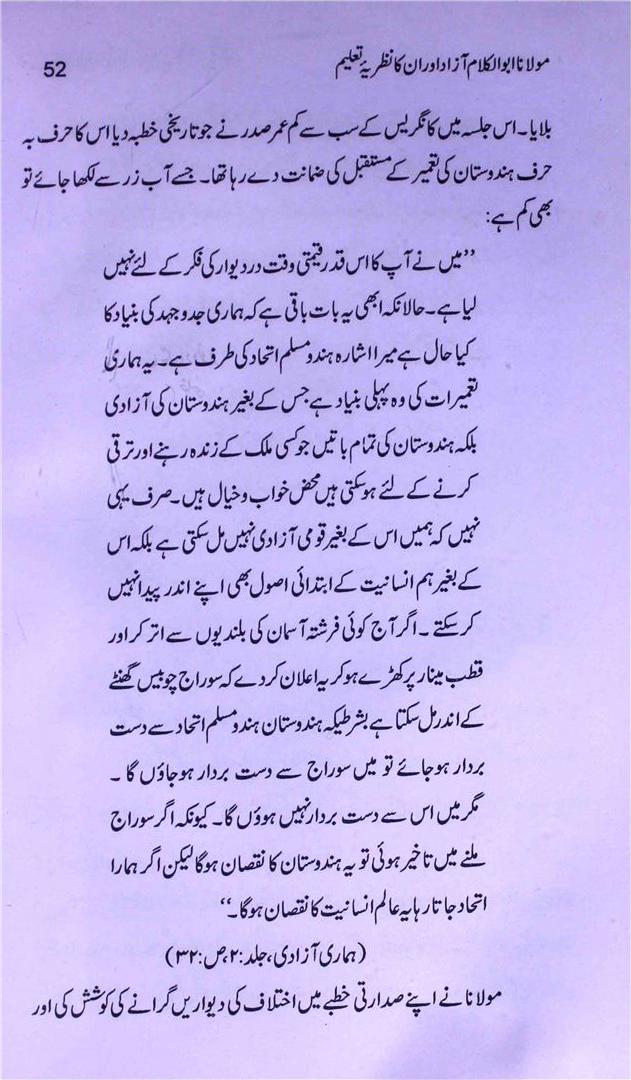 مولانا ابوالکلام آزاد اور ان کا نظریۂ تعلیم
52
بلایا۔ اس جلسہ میں کانگریس کے سب سے کم عمر صدر نے جو تاریخی خطبہ دیا اس کا حرف بہ
حرف ہندوستان کی تعمیر کے مستقبل کی ضمانت دے رہا تھا۔ جسے آب زر سے لکھا جائے تو
بھی کم ہے:
’’میں نے آپ کا اس قدر قیمتی وقت در دیوار کی فکر کے لئے نہیں
لیا ہے۔ حالانکہ ابھی یہ بات باقی ہے کہ ہماری جدوجہد کی بنیاد کا
کیا حال ہے میرا اشارہ ہندو مسلم اتحاد کی طرف ہے۔ یہ ہماری
تعمیرات کی وہ پہلی بنیاد ہے جس کے بغیر ہندوستان کی آزادی
بلکہ ہندوستان کی تمام باتیں جو کسی ملک کے زندہ رہنے اور ترقی
کرنے کے لئے ہو سکتی ہیں محض خواب و خیال ہیں۔ صرف یہی
نہیں کہ ہمیں اس کے بغیر قومی آزادی نہیں مل سکتی ہے بلکہ اس
کے بغیر ہم انسانیت کے ابتدائی اصول بھی اپنے اندر پیدا نہیں
کر سکتے ۔ اگر آج کوئی فرشتہ آسمان کی بلندیوں سے اتر کر اور
قطب مینار پر کھڑے ہو کر یہ اعلان کر دے کہ سوراج چوبیس گھنٹے
کے اندر مل سکتا ہے بشرطیکہ ہندوستان ہندو مسلم اتحاد سے دست
بردار ہو جائے تو میں سوراج سے دست بردار ہو جاؤں گا ۔
مگر میں اس سے دست بردار نہیں ہوؤں گا۔ کیونکہ اگر سوراج
ملنے میں تاخیر ہوئی تو یہ ہندوستان کا نقصان ہوگا لیکن اگر ہمارا
اتحاد جاتا رہا یہ عالم انسانیت کا نقصان ہوگا۔‘‘
(ہماری آزادی، جلد:۲،ص:۳۲)
مولانا نے اپنے صدارتی خطبے میں اختلاف کی دیواریں گرانے کی کوشش کی اور